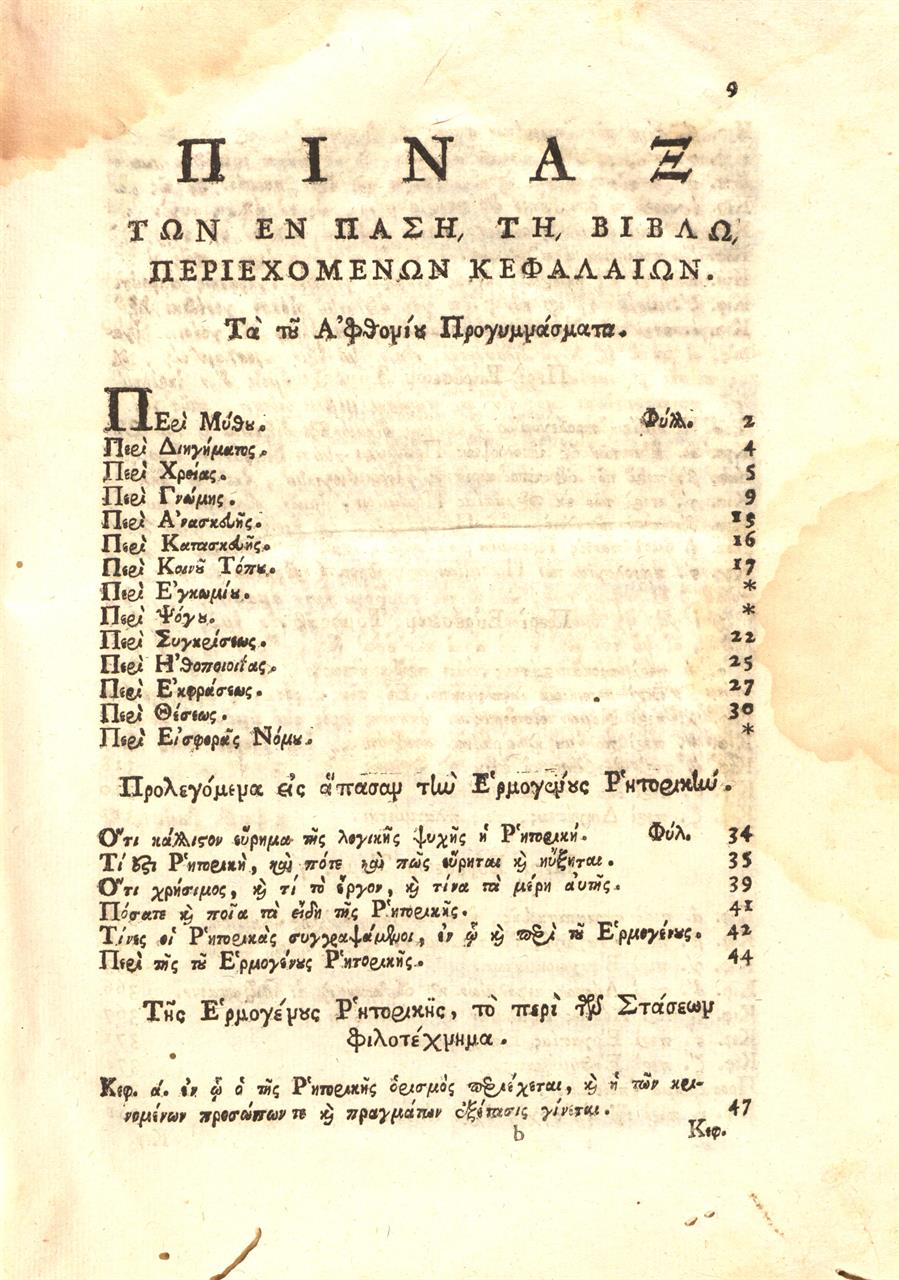 9
ΠΙΝΑΞ
ΤΩΝ ΕΝ ΠΑΣΗ, ΤΗ, ΒΙΒΛΩ,
ΠΕΡΙΕΧΟΜΕΝΩΝ ΚΕΦΑΛΑΙΩΝ.
Τὰ τοῦ Ἀφθονίου Προγυμνάσματα.
ΠΕρὶ Μύθου. Φύλλ. 2
Περὶ Διηγήματος. 4
Περὶ Χρείας. 5
Περὶ Γνώμης. 9
Περὶ Ἀνασκευῆς. 15
Περὶ Κατασκευῆς. 16
Περὶ Κοινοῦ Τόπου. 17
Περὶ Ἐγκωμίου. *
Περὶ Ψόγου. *
Περὶ Συγκρίσεως. 22
Περὶ Ἠθοποιοιΐας. 25
Περὶ Ἐκφράσεως. 27
Περὶ Θέσεως. 30
Περὶ Εἰσφορᾶς Νόμου. *
Προλεγόμενα εἰς ἅπασαν τὴν Ἑρμογένους Ῥητορικήν.
Ὅτι κάλλιστον εὕρημα τῆς λογικῆς ψυχῆς ἡ Ῥητορική. Φύλ. 34
Τί ἐστι Ῥητορικὴ, καὶ πότε καὶ πῶς εὕρηται καὶ ηὔξηται. 35
Ὅτι χρήσιμος, καὶ τί τὸ ἔργον, καὶ τίνα τὰ μέρη αὐτῆς. 39
Πόσατε καὶ ποῖα τὰ εἴδη τῆς Ῥητορικῆς. 41
Τίνες οἱ Ῥητορικὰς συγγραψάμενοι, ἐν ᾧ καὶ περὶ τοῦ Ἑρμογένους. 42
Περὶ τῆς τοῦ Ἑρμογένους Ῥητορικῆς. 44
Τῆς Ἑρμογένους Ῥητορικῆς, τὸ περὶ τῶν Στάσεων
φιλοτέχνημα.
Κεφ. ά. ἐν ᾧ ὁ τῆς Ῥητορικῆς ὁρισμὸς περιέχεται, καὶ ἡ τῶν κρι-
νομένων προσώπων τε καὶ πραγμάτων ἐξέτασις γίνεται. 47
b Κεφ.